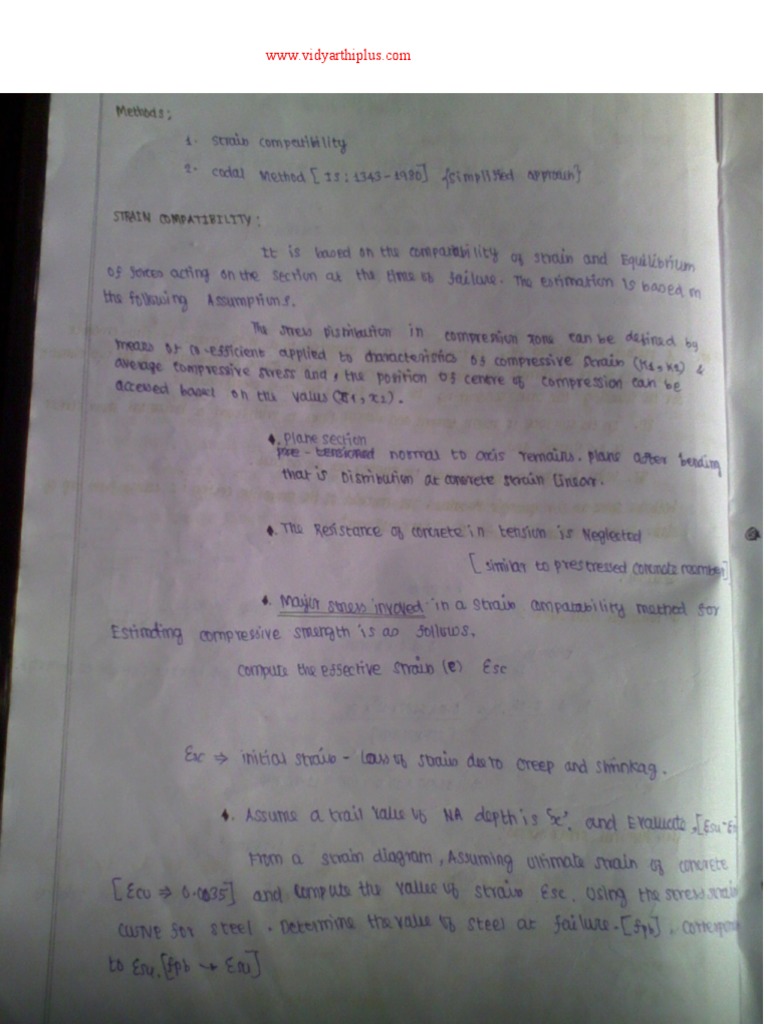 www.vidyarthiplus.com
Methods:
1. Strain compatibility
2. codal Method [IS: 1343-1980] {simplified approach}
STRAIN COMPATIBILITY:
It is based on the comparability of strain and Equilibrium
of forces acting on the section at the time of failure. The estimation is based on
the following Assumptions.
The stress Distribution in compression zone can be defined by
means of co-efficient applied to characteristics of compressive strain (K1, K2) &
average compressive stress and, the position of centre of compression can be
accessed based on the value (K1, K2).
Plane section
pre-tensioned normal to axis remains. plane after bending
that is Distribution at concrete strain linear.
The Resistance of concrete in tension is Neglected
[similar to prestressed concrete member]
Major stress involved in a strain compatability method for
Estimating compressive strength is as follows.
compute the effective strain (e) Esc
Esc ⇒ initial strain - Loss of strain due to creep and shrinkag.
Assume a trail value of NA depth is 'x', and Evaluate,
From a strain diagram, Assuming ultimate strain of concrete
[Ecu ⇒ 0.0035] and compute the value of strain Esc. Using the stress, strain
curve for steel. Determine the value of steel at failure. [fpb]. Correspon
to Esu. [fpb → Esu]